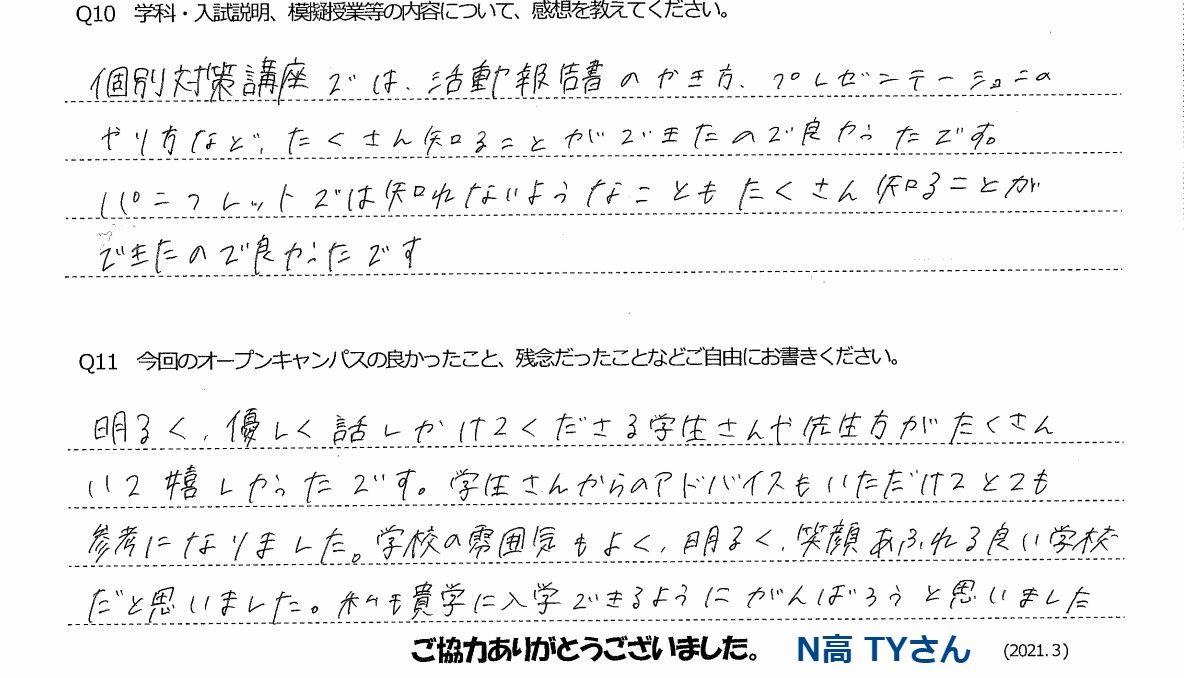 Q10 学科・入試説明、模擬授業等の内容について、感想を教えてください。
個別対策講座では、活動報告書のかき方、プレゼンテーションの
やり方など、たくさん知ることができたので良かったです。
パンフレットでは知れないようなこともたくさん知ることが
できたので良かったです
Q11 今回のオープンキャンパスの良かったこと、残念だったことなどご自由にお書きください。
明るく、優しく話しかけてくださる学生さんや先生方がたくさん
いて嬉しかったです。学生さんからのアドバイスもいただけてとても
参考になりました。学校の雰囲気もよく、明るく、笑顔あふれる良い学校
だと思いました。私も貴学に入学できるようにがんばろうと思いました
ご協力ありがとうございました。 N高 TYさん (2021.3)